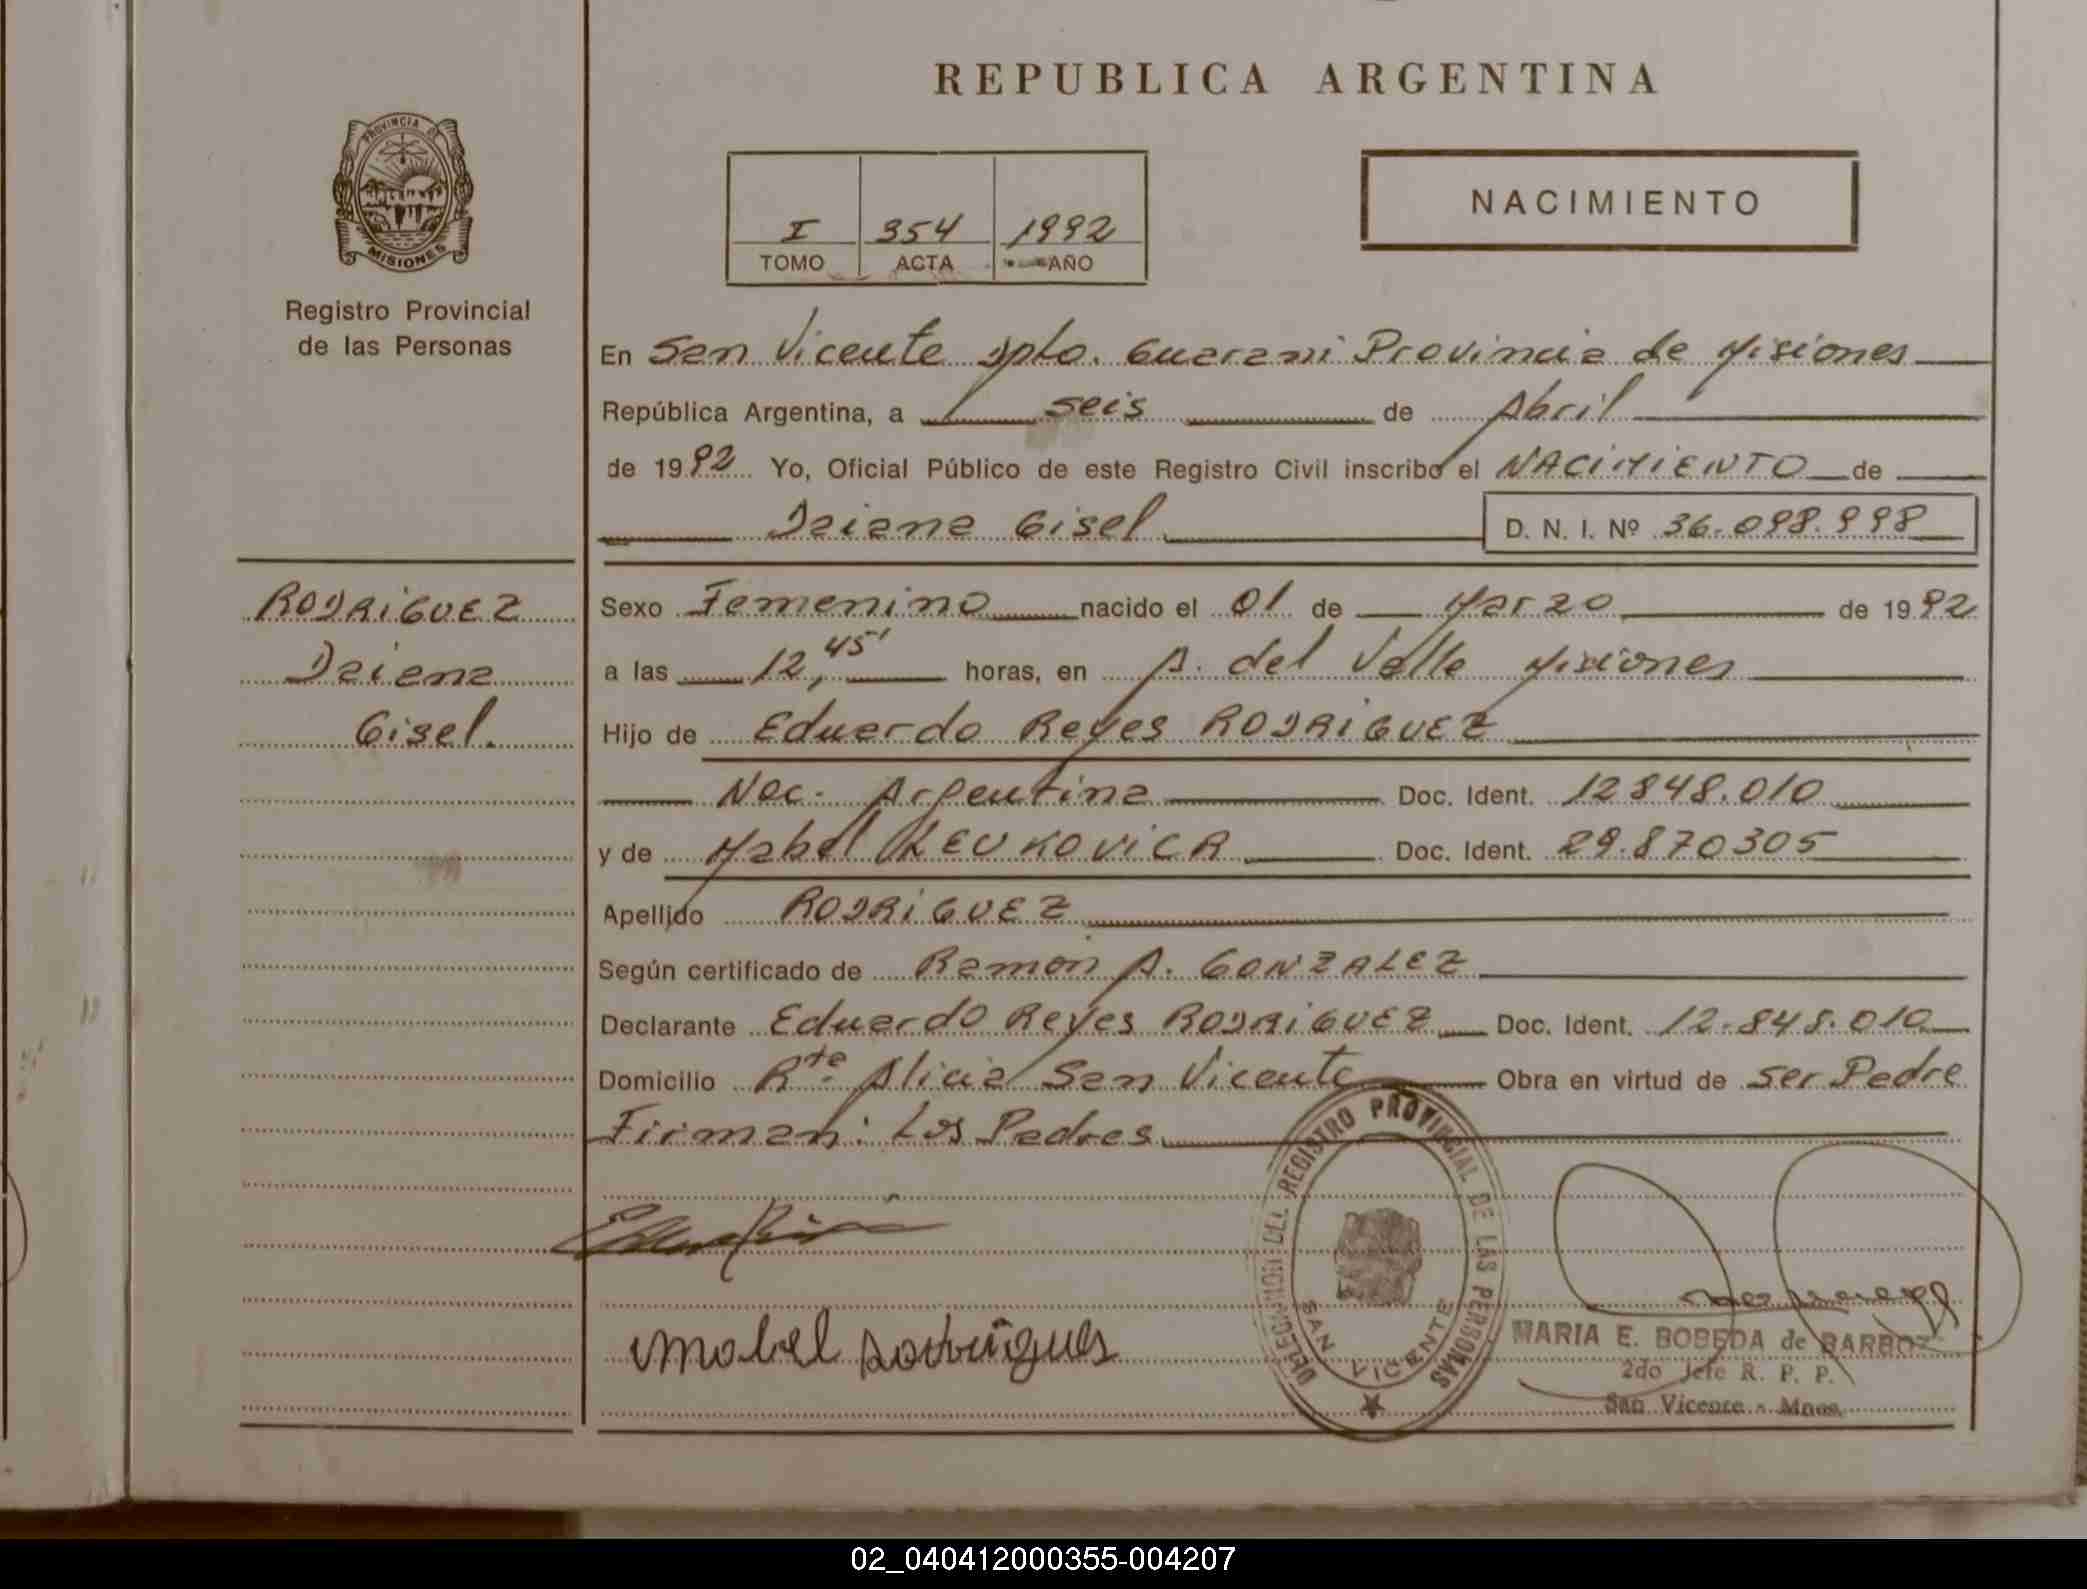 REPUBLICA ARGENTINA
PROVINCIA DE
MISIONES
Registro Provincial
de las Personas
I 354 1992
TOMO ACTA AÑO
NACIMIENTO
En San Vicente Dpto. Guarani Provincia de Misiones
República Argentina, a seis de Abril
de 1992 Yo, Oficial Público de este Registro Civil inscribo el NACIMIENTO de
Daiana Gisel D. N. I. Nº 36.098.998
RODRIGUEZ
Daiana
Gisel.
Sexo Femenino nacido el 01 de Marzo de 1992
a las 12,45' horas, en A. del Valle Misiones
Hijo de Eduardo Reyes RODRIGUEZ
Nac. Argentina Doc. Ident. 12848.010
y de Mabel Doc. Ident. 29.870305
Apellido RODRIGUEZ
Según certificado de Ramon A. GONZALEZ
Declarante Eduardo Reyes RODRIGUEZ Doc. Ident. 12.848.010
Domicilio Rta Alicia San Vicente Obra en virtud de ser Padre
Firman: Los Padres
mabel
DELEGACION DEL REGISTRO PROVINCIAL DE LAS PERSONAS
SAN VICENTE
MARIA E. BOBEDA de
2do Jefe R. P. P.
San Vicente - Mnes.
02_040412000355-004207